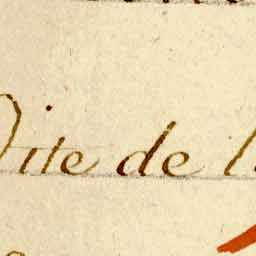 ite de l